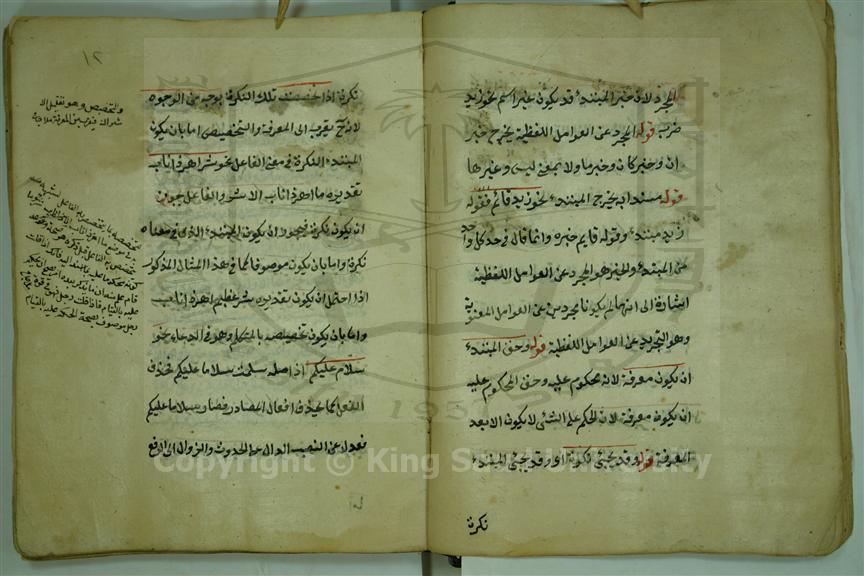 المجرد لان خبر المبتدء قد يكون غير اسم نحو زيد
ضرب قوله المجرد عن العوامل اللفظية يخرج خبر
ان وخبر كان وخبر ما ولا بمعنى ليس وغيرها
قوله مسندا به يخرج المبتدء نحو زيد قائم فقوله
زيد مبتدء وقوله قايم خبره وانما قال في حد كل واحد
من المبتدء والخبر هو المجرد عن العوامل اللفظية
اشارة الى انهما لم يكونا مجردين عن العوامل المعنوية
وهو التجريد عن العوامل اللفظية قوله وحق المبتدء
ان يكون معرفة لانه محكوم عليه وحق المحكوم عليه
ان يكون معرفة لان الحكم على الشئ لا يكون الا بعد
المعرفة قوله وقد يجئ نكرة اى وقد يجئ المبتدء
نكرة
١٢
نكرة اذا خصصت تلك النكرة بوجه من الوجوه
لانه ح يقرب الى المعرفة والتخصيص اما بان يكون
المبتدء النكرة في معنى الفاعل نحو شر اهر ذا ناب
تقديره ما اهر ذا ناب الا شر والفاعل يجوز
ان يكون نكرة فيجوز ان يكون المبتدء الذى في معناه
نكرة واما بان يكون موصوفا كما في هذا المثال المذكور
اذ احتمل ان يكون تقديره شر عظيم اهر ذا ناب
واما بان يكون تخصيصه بالمتكلم وهو في الدعاء نحو
سلام عليكم اذ اصله سلمت سلاما عليكم فحذف
الفعل كما يحذف افعال المصادر فصار سلاما عليكم
فعدل عن النصب الدال على الحدوث والزوال الى الرفع
والتخصيص وهو تقليل الا
Copyright © King Saud University
1957